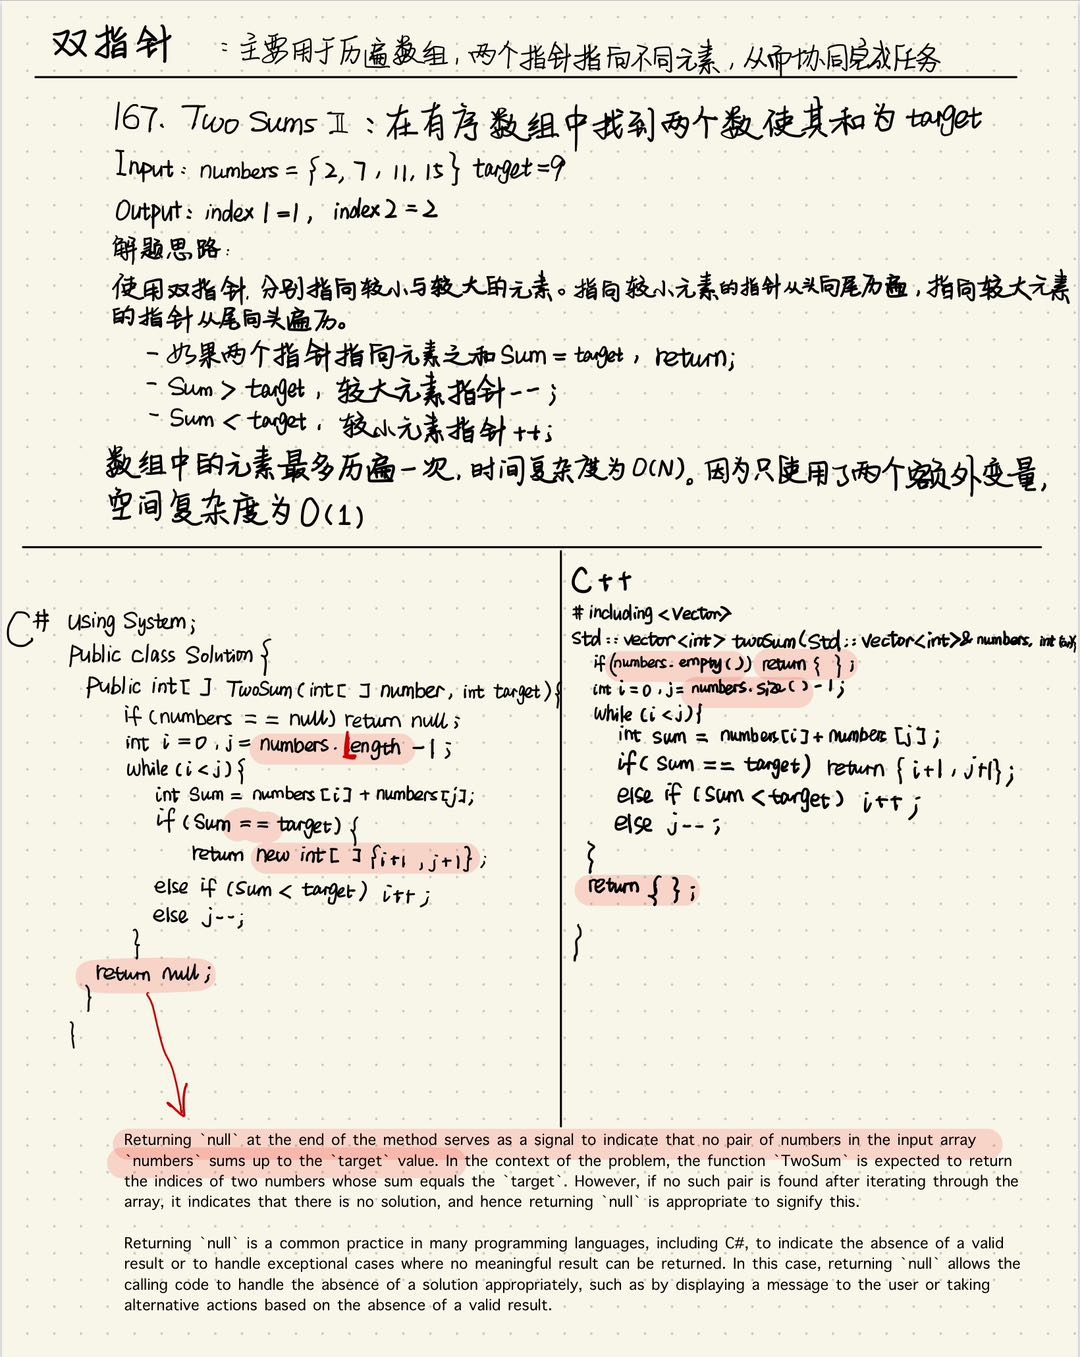 双指针 : 主要用于历遍数组, 两个指针指向不同元素, 从而协同完成任务
167. Two Sums II : 在有序数组中找到两个数使其和为 target
Input: numbers = {2, 7, 11, 15} target=9
Output: index 1 =1, index 2 = 2
解题思路:
使用双指针, 分别指向较小与较大的元素。指向较小元素的指针从头向尾历遍, 指向较大元素
的指针从尾向头遍历。
- 如果两个指针指向元素之和 Sum = target, return;
- Sum > target, 较大元素指针--;
- Sum < target, 较小元素指针++;
数组中的元素最多历遍一次, 时间复杂度为 O(N)。因为只使用了两个额外变量,
空间复杂度为 O(1)
C# Using System;
Public class Solution {
Public int[ ] TwoSum(int[ ] number, int target){
if (numbers == null) return null;
int i =0, j= numbers.Length -1;
while (i<j){
int Sum = numbers[i] + numbers[j];
if (Sum == target) {
return new int[ ] {i+1, j+1};
else if (Sum < target) i++;
else j--;
}
return null;
}
}
C++
# including <Vector>
Std::vector<int> twoSum(Std::Vector<int>& numbers, int
if (numbers.empty()) return { };
int i=0, j= numbers.size()-1;
while (i<j){
int sum = numbers[i]+number[j];
if( Sum == target) return {i+1, j+1};
else if (Sum <target) i++;
else j--;
}
return { };
}
Returning `null` at the end of the method serves as a signal to indicate that no pair of numbers in the input array
`numbers` sums up to the `target` value. In the context of the problem, the function `TwoSum` is expected to return
the indices of two numbers whose sum equals the `target`. However, if no such pair is found after iterating through the
array, it indicates that there is no solution, and hence returning `null` is appropriate to signify this.
Returning `null` is a common practice in many programming languages, including C#, to indicate the absence of a valid
result or to handle exceptional cases where no meaningful result can be returned. In this case, returning `null` allows the
calling code to handle the absence of a solution appropriately, such as by displaying a message to the user or taking
alternative actions based on the absence of a valid result.